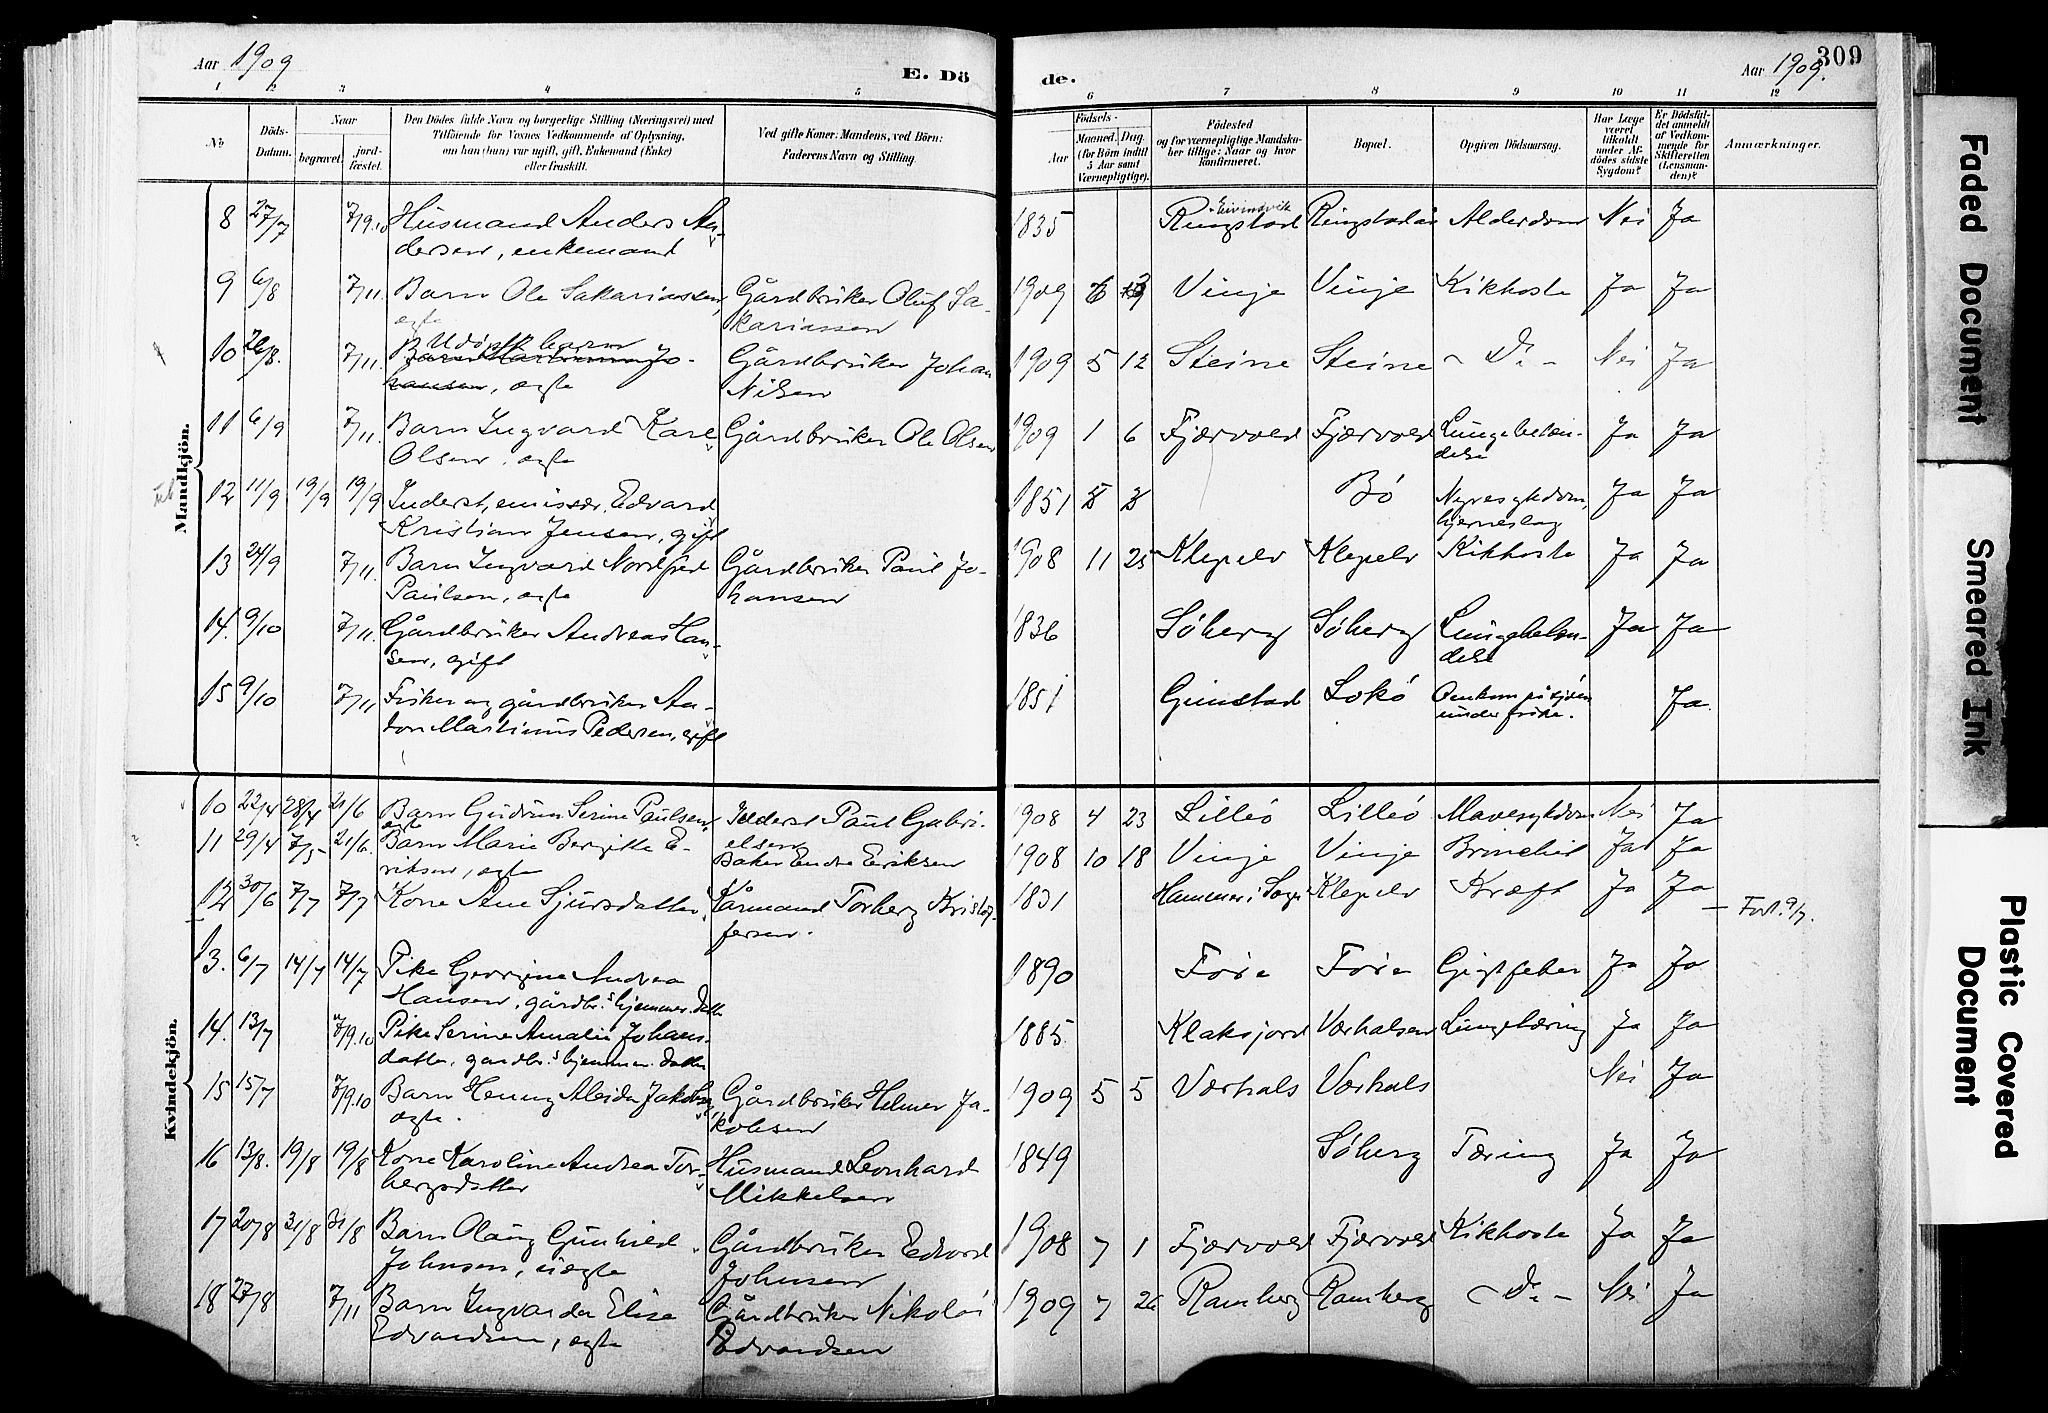 Aar 1909
E. Dö
de.
Aar 1909.
309
1 2 3 4 5
6 7 8 9 10 11 12
No
Döds-
Datum.
Naar
begravet.
jord-
fæstet.
Den Dödes fulde Navn og borgerlige Stilling (Næringsvei) med
Tilföiende for Voxnes Vedkommende af Oplysning,
om han (hun) var ugift, gift, Enkemand (Enke)
eller fraskilt.
Ved gifte Koner: Mandens, ved Börn:
Faderens Navn og Stilling.
Födsels-
Aar
Maaned.
Dag.
(for Börn indtil
5 Aar samt
Værnepligtige).
Födested
og for værnepligtige Mandska-
ber tillige: Naar og hvor
konfirmeret.
Bopæl.
Opgiven Dödsaarsag.
Har Læge
været
tilkaldt
under Af-
dödes sidste
Sygdom?
Er Dödsfal-
det anmeldt
af Vedkom-
mende for
Skifteretten
(Lensman-
den)?
Anmærkninger.
Mandkjön.
8 27/7 7/9.10 Husmand Anders An-
dersen, enkemand
1835 Ringstad Eivindsvik Ringstadås Alderdom Nei Ja
9 6/8 7/11. Barn Ole Sakariassen,
ægte
Gårdbruker Oluf Sa-
kariassen
1909 Vinje Vinje Kikhoste Ja Ja
10 26/8. 7/11. Udöpt barn Jo-
hansen, ægte
Gårdbruker Johan
Nilsen
1909 5 12 Steine Steine - Do - Nei Ja
11 6/9 7/11. Barn Ingvard Karl
Olsen, ægte
Gårdbruker Ole Olsen
1909 1 6 Fjærvold Fjærvold Lungebetæn-
delse Ja Ja
12 11/9 19/9 19/9 Inderst, emissær. Edvard
Kristian Jensen, gift
1851 Bö Nyresykdom,
hjerneslag Ja Ja
13 24/9 7/11. Barn Ingvard Nordfred
Paulsen, ægte
Gårdbruker Paul Jo-
hansen
1908 11 25 Klepelv Klepelv Kikhoste Ja Ja
14. 9/10 7/11. Gårdbruker Andreas Han-
sen, gift
1836 Söberg Söberg Lungebetæn-
delse Ja Ja
15 9/10 7/11 Fisker og gårdbruker An-
ton Martinus Pedersen, gift
1851 Guustad Lokö Omkom på sjöen
under fiske. Ja
Kvindekjön.
10 22/4 28/4 21/6 Barn Gudrun Serine Paulsen,
ægte
Inderst Paul Gabri-
elsen
1908 4 23 Lilleö Lilleö Mavesykdom Nei Ja
11 29/4 7/5 21/6. Barn Marie Bergitte E-
riksen, ægte
Baker Endre Eriksen
1908 10 18 Vinje Vinje Bronchit Ja Ja
12 30/6 7/7 7/7 Kone Ane Sjursdatter
Kårmand Torberg Kristof-
fersen.
1831 Hammer i Sogn Klepelv Kræft Ja Ja
Fort. 9/7.
13. 6/7 14/7 14/7 Pike Georgine Andrea
Hansen, gårdbr.s hjemmev. datter
1890 Före Före Gigtfeber Ja Ja
14. 13/7 7/9.10 Pike Serine Amalie Johans-
datter, gardbr.s hjemmev. datter
1885. Klaksjord Værhalsen Lungetæring Ja Ja
15 15/7 7/9.10 Barn Henny Aleida Jakobsen,
ægte.
Gårdbruker Helmer Ja-
kobsen
1909 5 5 Værhals Værhals Nei Ja
16 13/8. 19/8 19/8 Kone Karoline Andrea Tor-
bergsdatter
Husmand Leonhard
Mikkelsen
1849 Söberg Tæring Ja Ja
17 20/8 31/8 31/8 Barn Olaug Gunhild
Johnsen, uægte
Gårdbruker Edvard
Johnsen
1908 7 1 Fjærvold Fjærvold Kikhoste Ja Ja
18 27/8 7/11 Barn Ingvarda Elise
Edvardsen, ægte
Gårdbruker Nikolai
Edvardsen
1909 7 26 Ramberg Ramberg - Do - Nei Ja
Faded Document
Smeared Ink
Plastic Covered
Document